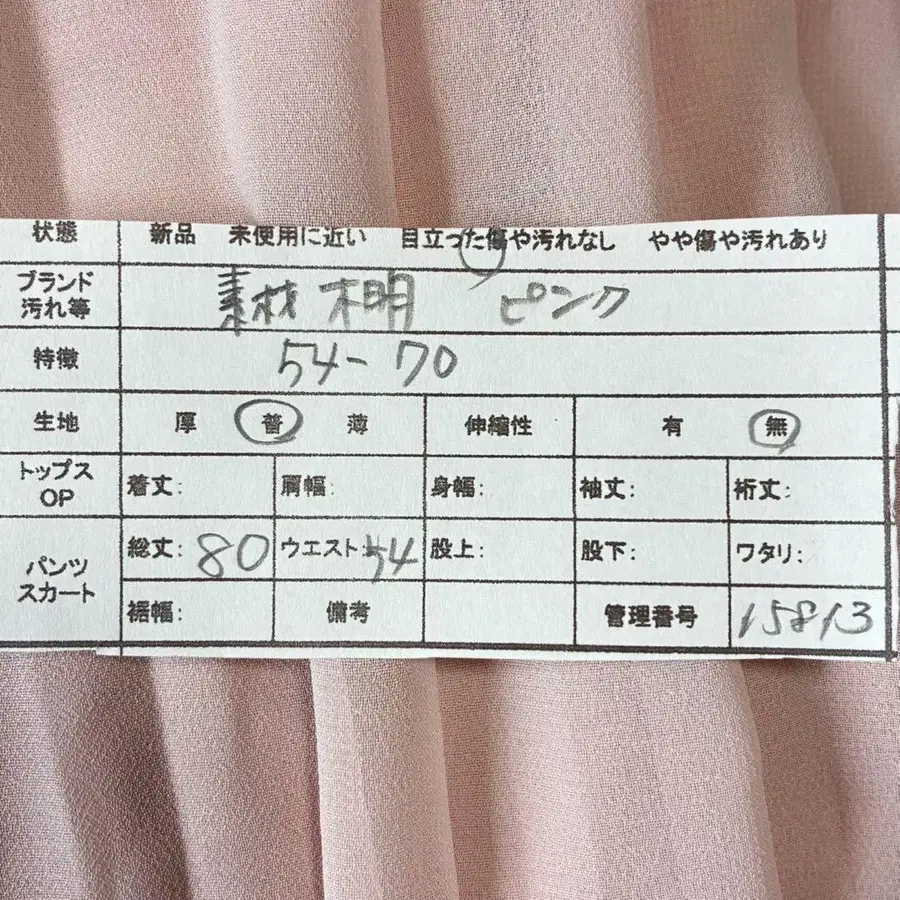 状態 新品 未使用に近い 目立った傷や汚れなし やや傷や汚れあり
ブランド
汚れ等 素材 不明 ピンク
特徴 54-70
生地 厚 普 薄 伸縮性 有 無
トップス
OP 着丈: 肩幅: 身幅: 袖丈: 裄丈:
パンツ
スカート 総丈: 80 ウエスト: 54 股上: 股下: ワタリ:
裾幅: 備考 管理番号 15813